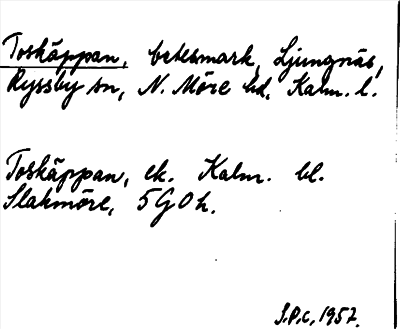 Toskäppan, betesmark, Ljungnäs,
Ryssby sn, N. Möre hd, Kalm. l.
Toskäppan, ek. Kalm. bl.
Slakmöre, 5 G 0 h.
S.P.c, 1957.